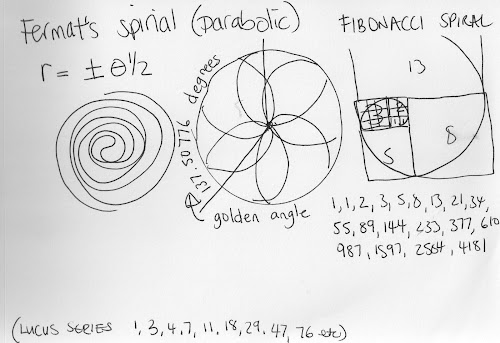 Fermat's spirial (parabolic)
r = ± θ 1/2
137.50776 degrees
golden angle
FIBONACCI SPIRAL
13
8
5
1, 1, 2, 3, 5, 8, 13, 21, 34,
55, 89, 144, 233, 377, 610
987, 1597, 2584, 4181
(LUCUS SERIES 1, 3, 4, 7, 11, 18, 29, 47, 76 etc)